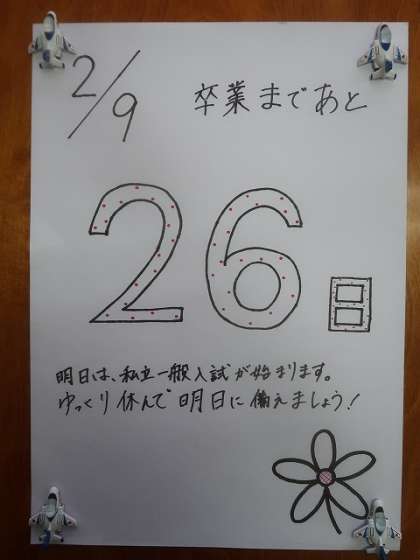 2/9
卒業まであと
26日
明日は、私立一般入試が始まります。
ゆっくり休んで明日に備えましょう!